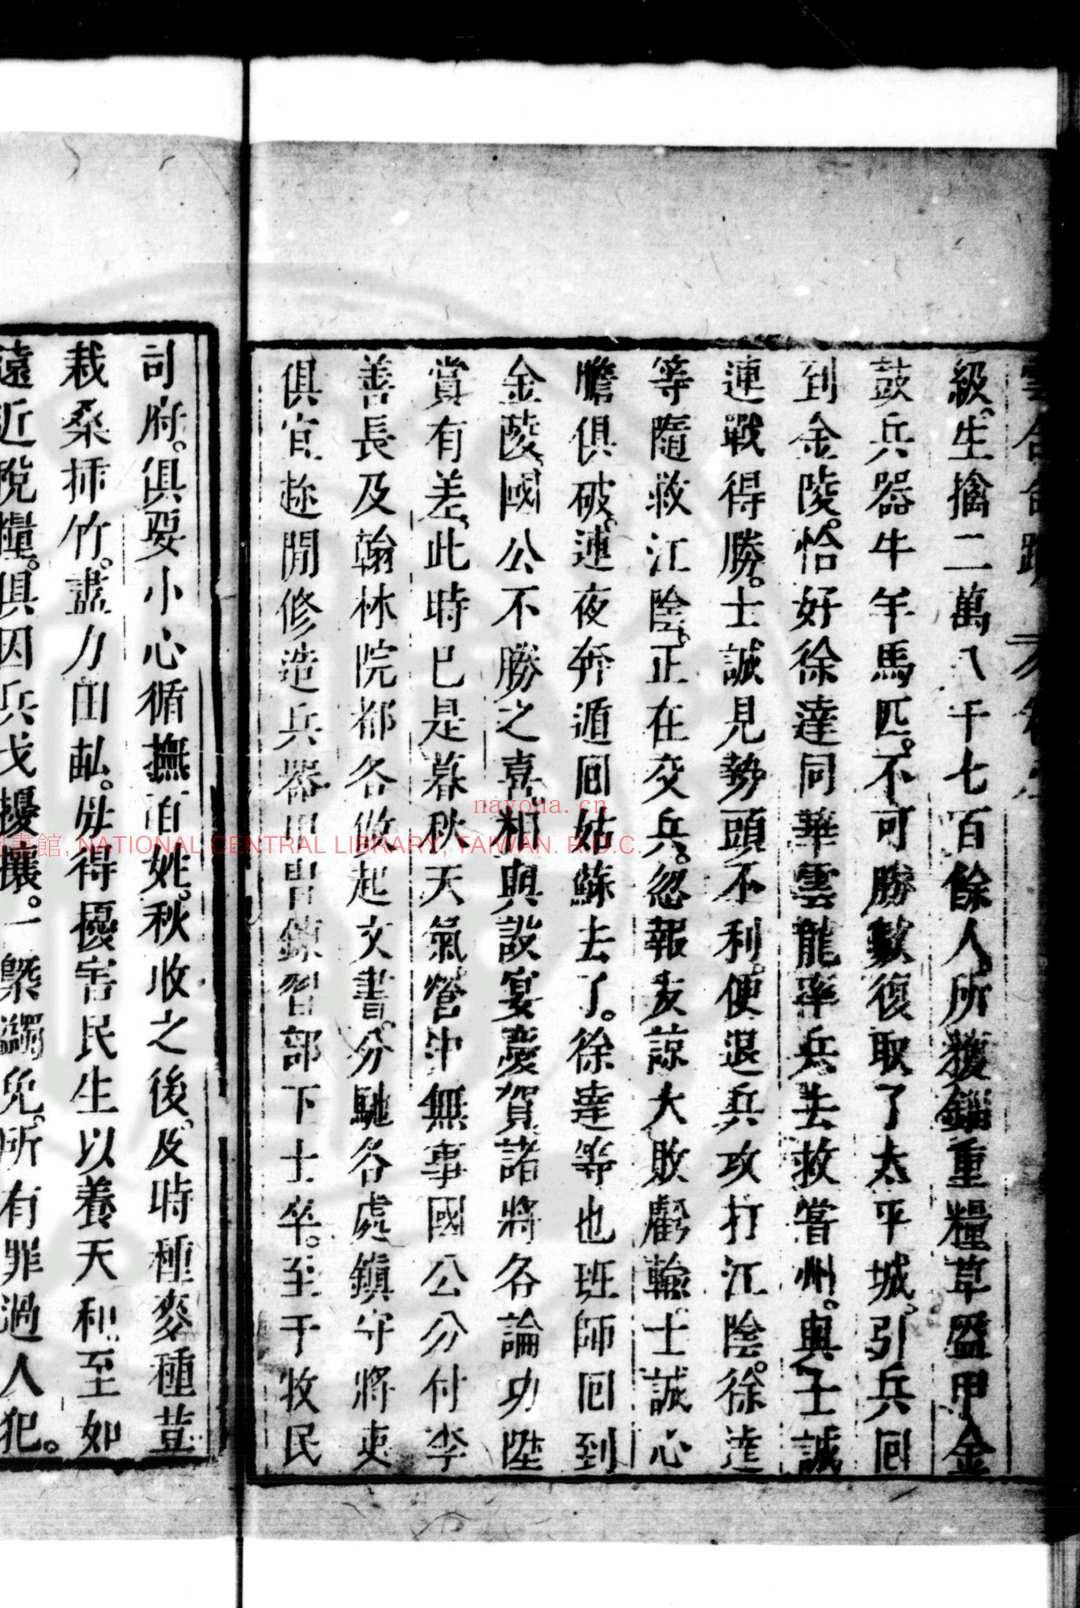 級。生擒二萬八千七百餘人。所獲輜重糧草盔甲金
鼓兵器牛羊馬匹。不可勝數。復取了太平城。引兵回
到金陵。恰好徐達同華雲龍率兵去救嘗州。與士誠
連戰得勝。士誠見勢頭不利。便退兵攻打江陰。徐達
等隨救江陰。正在交兵。忽報友諒大敗虧輸。士誠心
膽俱破。連夜奔遁回姑蘇去了。徐達等也班師回到
金陵。國公不勝之喜。相與設宴慶賀。諸將各論功陞
賞有差。此時已是暮秋天氣。營中無事。國公分付李
善長及翰林院都各做起文書。分馳各處鎮守將吏
俱宜趂閒修造兵器甲冑。鍊習部下士卒。至于牧民
司府。俱要小心循撫百姓。秋收之後。及時種麥種荳
栽桑揷竹。盡力田畝。毋得擾害民生。以養天和。至如
遠近稅糧。俱因兵戈擾攘。一槩蠲免。所有罪過人犯。
NATIONAL CENTRAL LIBRARY, TAIWAN. R.O.C.
nayona.cn